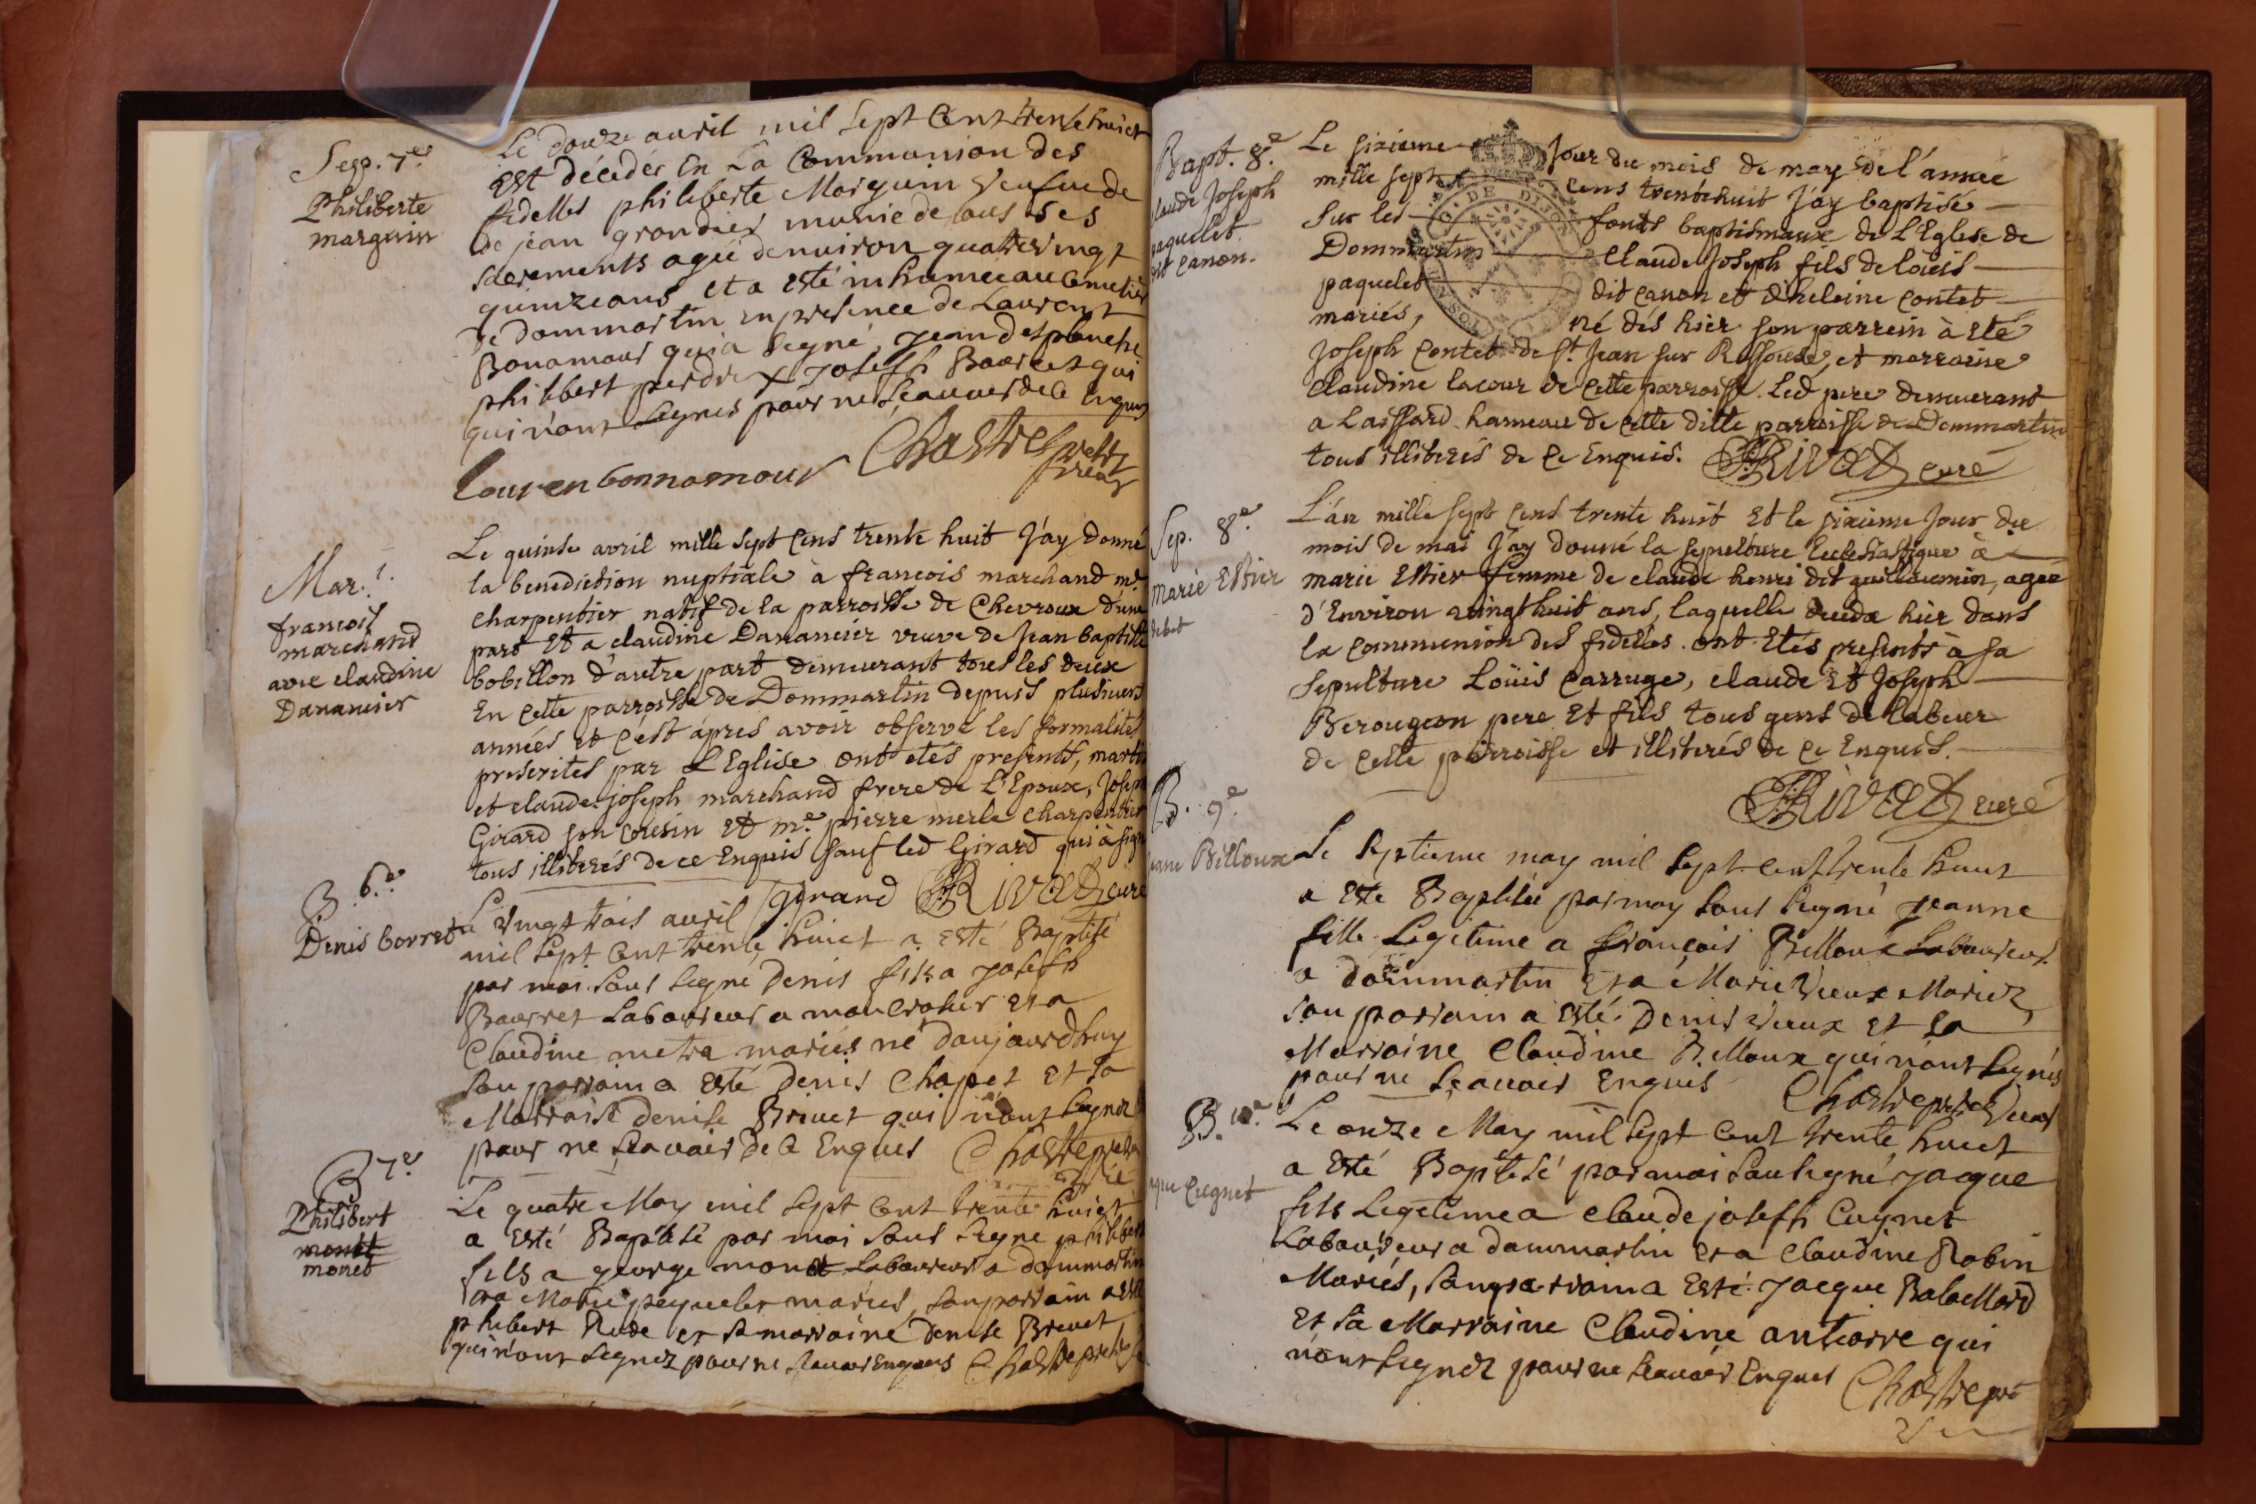 Sep. 7e
Philiberte
marguin
Le douze avril mil sept cent trente huict
Est décédéé En La Communion des
fidelles philiberte Marguin Veufue de
de jean grandier munie de tous ses
sacrements ageé denuiron quatrevingt
quinze ans et a esté inhumeé au Cemetier
de dommartin en presence de Laurent
Bonamour qui a signé, jean desplanche
philibert perdrix joseph Bourcet qui
qui n'ont signés pour ne sçauoir de ce Enquis
louren bonnamour Chastre prettre
vicar
Mar. 1.
francois
marchand
avec claudine
Danancier
Le quinse avril mille sept cens trente huit J'ay donné
la benediction nuptiale à francois marchand me
charpentier natif de la parroisse de Chevroux d'une
part Et a claudine Dananciér veuve de Jean baptiste
bobillon d'autre part demeurant tous les deux
En cette parroisse de Dommartin depuis plusieurs
années et c'est ápres avoir observé les formalités
prescrites par L'Eglise ont etés presents, martin
et claude-joseph marchand frere de L'Epoux, Joseph
Girard son cousin Et me pierre merle charpentier
tous illiterés de ce Enquis sauf led Girard qui à signé
girard Rivet curé
B. 6e
Denis borret
Le vingt trois auril
mil sept cent trente huict a esté Baptisé
par moi sous signé Denis fils a joseph
Bourret Laboureur a moucrotier et a
Claudine metra mariés né d'aujourdhuy
son parrain a esté Denis Chapet et sa
Marraine denise Brivet qui n'ont signez
pour ne sçauoir de ce Enquis Chastre prettre
B 7e
Philibert
monet
monet
Le quatre May mil sept cent trente huict
a esté Baptisé par moi sous signe philibert
fils a george monet Laboureur a dommartin
et a Marie paquelet mariés, son parrain a esté
phibert Rude et sa marraine denise Brevet
qui n'ont signez pour ne sçauoir Enquis Chastre prettre
Bapt. 8e
claude Joseph
paquelet
dit canon.
Le sixieme Jour du mois de may de l'année
mille sept cens trentehuit J'áy baptisé
sur les fonts baptismaux de L'Eglise de
Dommartin Claude Joseph fils de loüis
paquelet dit canon et d'heleine contet
mariés, né dés hier son parrein à eté
Joseph Contet de St Jean sur Reissouse, et marraine
Claudine lacour de cette parroisse. Led pere demeurant
a Laissard hameau de cette ditte parroisse de Dommartin
tous illiterés de ce Enquis. Rivet curé
Sep. 8e
Marie Estier
L'an mille sept cens trente huit Et le sixieme Jour du
mois de mai J'ay donné la sepulture Ecclesiastique à
marie Estier femme de claude henri dit guillaumin, ageé
d'Environ vingt huit ans, laquelle deceda hier dans
la communion des fideles. ont Etés presents à sa
sepulture Loüis carruge, claude Et Joseph
Berougeon pere Et fils tous gens de labeur
de cette parroisse et illiterés de ce Enquis.
Rivet curé
B. 9e
Jeane Billoux
Le septieme may mil sept cent trente huict
a este Baptisée par moy sous signé jeanne
fille Legitime a françois Billoux Laboureur
a dommartin et a Marie Vieux Mariez
son parrain a esté Denis Vieux et sa
Marraine Claudine Billoux qui n'ont signés
pour ne sçauoir Enquis Chastre prettre vicar
B. 10e
Jaque Cugnet
Le onze May mil sept cent trente huict
a esté Baptisé par moi soussigné jacque
fils Legetime a claude joseph Cugnet
Laboureur a dommartin et a claudine Robin
Mariés, son parrain a Esté jacque Rabuellard
et sa Marraine Claudine anticorre qui
n'ont signez pour ne scauoir Enquis Chastre prt